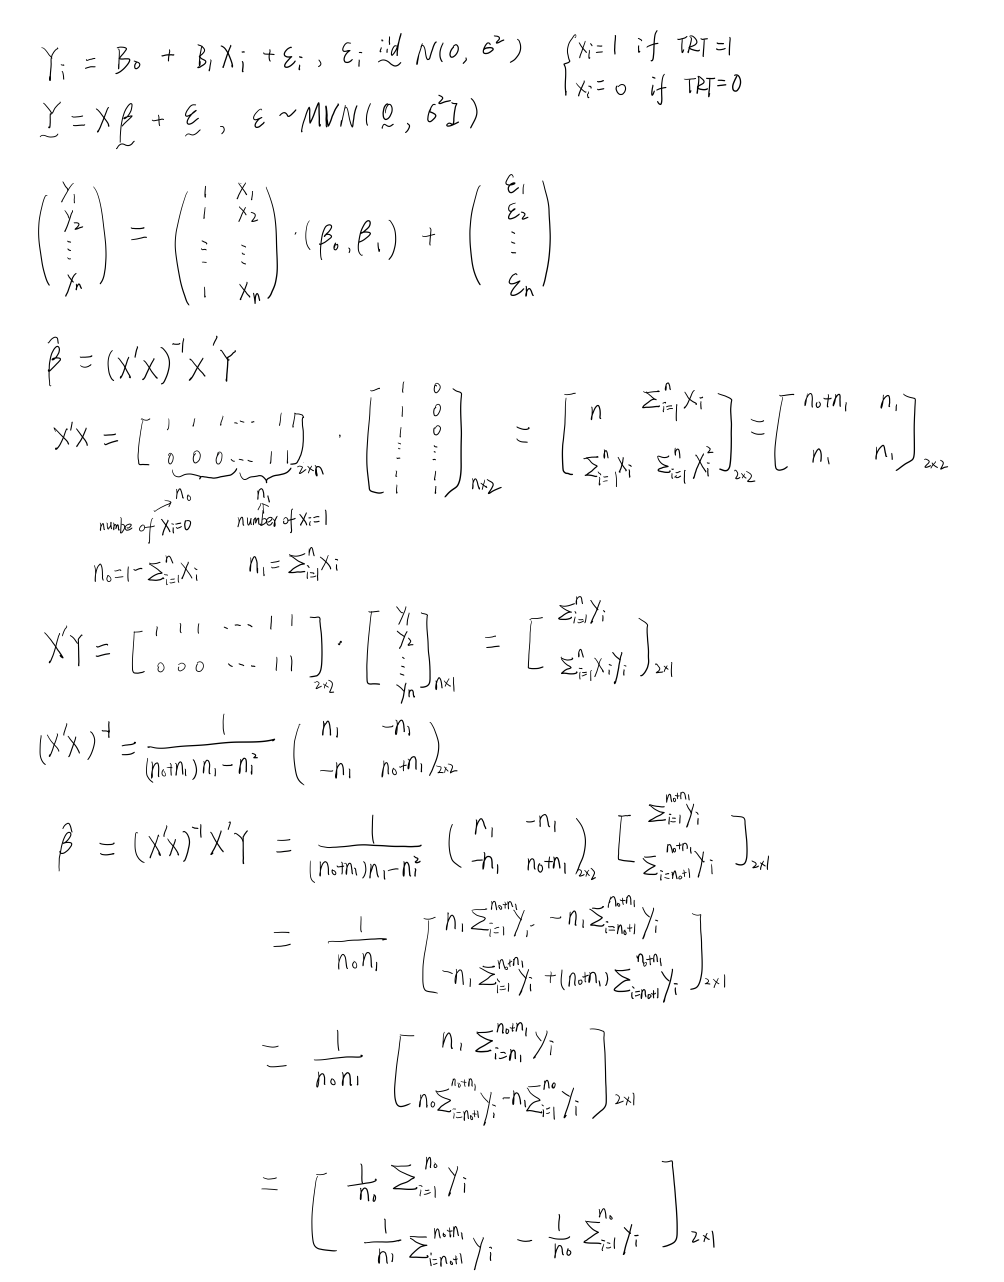 Y_i = B_0 + B_1 X_i + ε_i , ε_i iid ~ N(0, 6^2) { X_i = 1 if TRT=1
X_i = 0 if TRT=0
Y = Xβ + ε , ε ~ MVN(0, 6^2 I)
( y_1 y_2 ⋮ y_n ) = ( 1 x_1 1 x_2 ⋮ ⋮ 1 x_n ) · (β_0, β_1) + ( ε_1 ε_2 ⋮ ε_n )
β̂ = (X'X)^{-1} X'Y
X'X = [ 1 1 1 ... 1 1 ; 0 0 0 ... 1 1 ]_{2×n} · [ 1 0 ; 1 0 ; 1 0 ; ⋮ ⋮ ; 1 1 ]_{n×2} = [ n Σ_{i=1}^n X_i ; Σ_{i=1}^n X_i Σ_{i=1}^n X_i^2 ]_{2×2} = [ n_0+n_1 n_1 ; n_1 n_1 ]_{2×2}
n_0 n_1
numbe of X_i=0 number of X_i=1
n_0 = 1 - Σ_{i=1}^n X_i n_1 = Σ_{i=1}^n X_i
X'Y = [ 1 1 1 ... 1 1 ; 0 0 0 ... 1 1 ]_{2×2} · [ y_1 ; y_2 ; ⋮ ; y_n ]_{n×1} = [ Σ_{i=1}^n y_i ; Σ_{i=1}^n x_i y_i ]_{2×1}
(X'X)^{-1} = 1/((n_0+n_1)n_1 - n_1^2) ( n_1 -n_1 ; -n_1 n_0+n_1 )_{2×2}
β̂ = (X'X)^{-1} X'Y = 1/((n_0+n_1)n_1 - n_1^2) ( n_1 -n_1 ; -n_1 n_0+n_1 )_{2×2} [ Σ_{i=1}^{n_0+n_1} y_i ; Σ_{i=n_0+1}^{n_0+n_1} y_i ]_{2×1}
= 1/(n_0 n_1) [ n_1 Σ_{i=1}^{n_0+n_1} y_i - n_1 Σ_{i=n_0+1}^{n_0+n_1} y_i ; -n_1 Σ_{i=1}^{n_0+n_1} y_i + (n_0+n_1) Σ_{i=n_0+1}^{n_0+n_1} y_i ]_{2×1}
= 1/(n_0 n_1) [ n_1 Σ_{i=n_1}^{n_0+n_1} y_i ; n_0 Σ_{i=n_0+1}^{n_0+n_1} y_i - n_1 Σ_{i=1}^{n_0} y_i ]_{2×1}
= [ 1/n_0 Σ_{i=1}^{n_0} y_i ; 1/n_1 Σ_{i=n_0+1}^{n_0+n_1} y_i - 1/n_0 Σ_{i=1}^{n_0} y_i ]_{2×1}